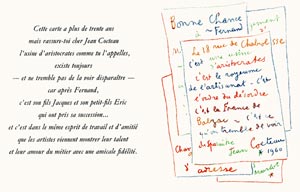 Cette carte a plus de trente ans
mais rassure-toi cher Jean Cocteau
l'usine d'aristocrates comme tu l'appelles,
existe toujours
— et ne tremble pas de la voir disparaître —
car après Fernand,
c'est son fils Jacques et son petit-fils Eric
qui ont pris sa succession...
et c'est dans le même esprit de travail et d'amitié
que les artistes viennent montrer leur talent
et leur amour du métier avec une amicale fidélité.
Bonne Chance
à Fernand
Le 18 rue de
c'est une usine
d'aristocrates
c'est le royaume
de l'artisanat. c'est
l'ordre du désordre
c'est la France de
Balzac — c'est ce
qu'on tremble de voir
disparaître
Jean Cocteau
1960
adresse